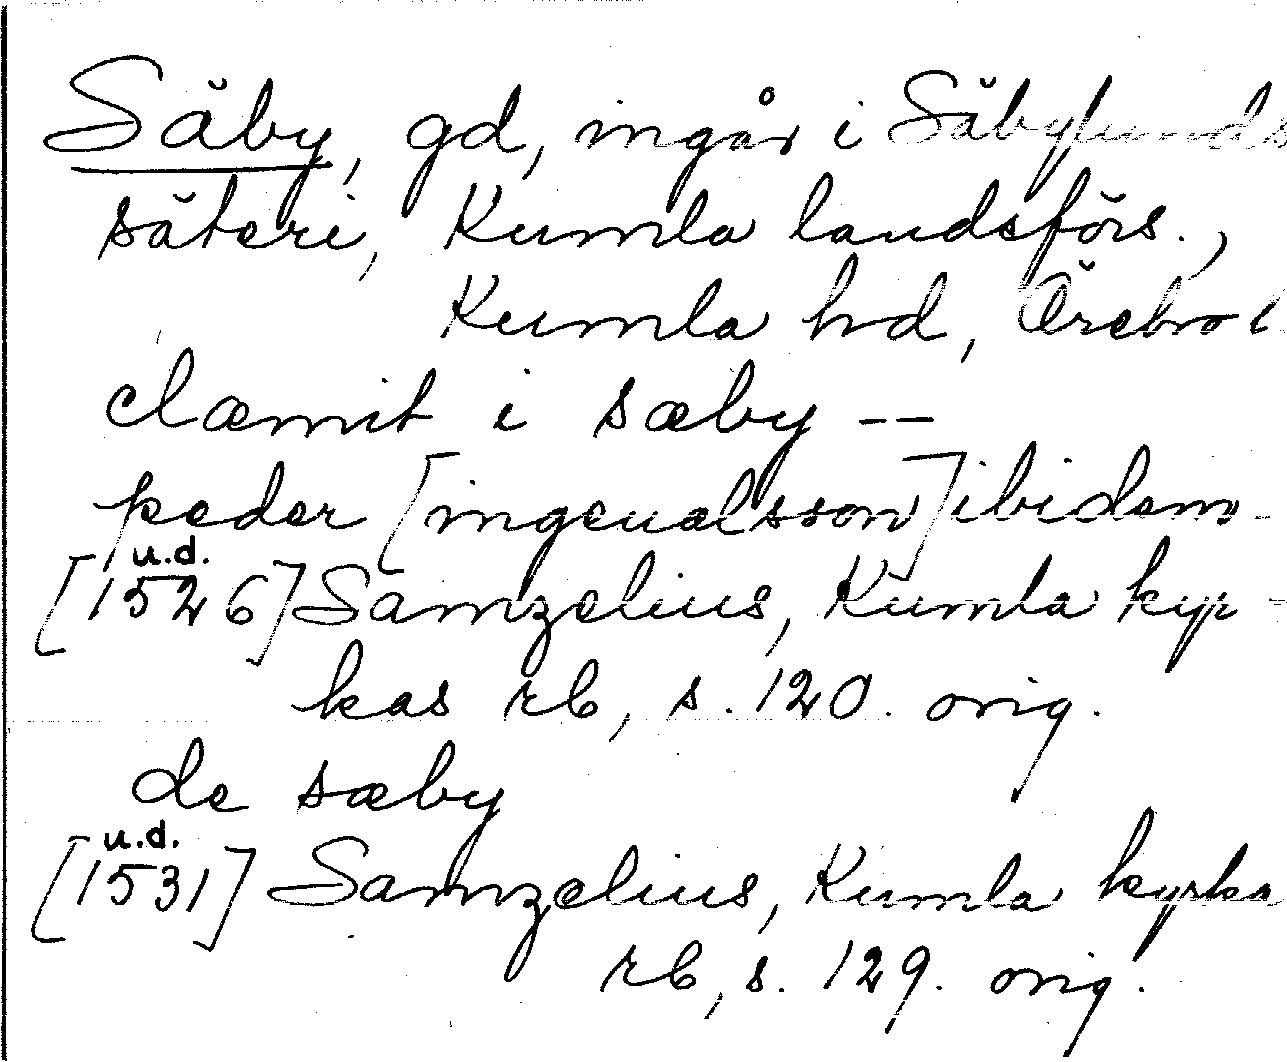 Säby, gd, ingår i Säbylunds
säteri, Kumla landsförs.,
Kumla hd, Örebro l
clæmit i sæby --
peder [ingeualsson] ibidem -
u.d.
[1526] Samzelius, Kumla kyr-
kas rb, s. 120. orig.
de sæby
u.d.
[1531] Samzelius, Kumla kyrka
rb, s. 129. orig.